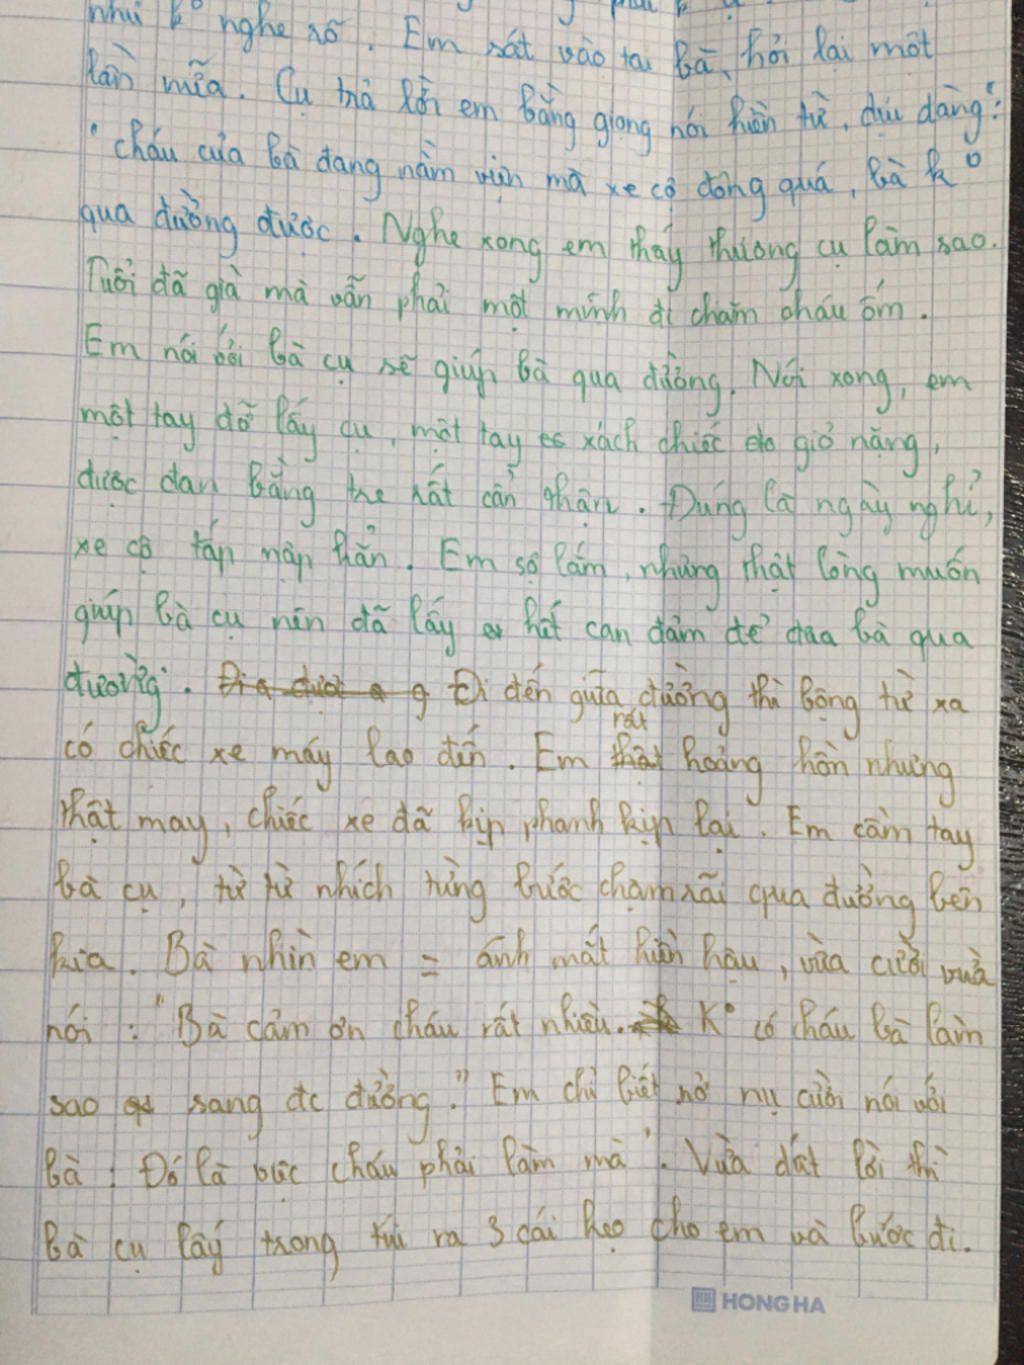 như k° nghe rõ. Em sát vào tai bà, hỏi lại một
lần nữa. Cụ trả lời em bằng giọng nói hiền từ, dịu dàng:
"cháu của bà đang nằm viện mà xe cộ đông quá, bà k°
qua đường được. Nghe xong em thấy thương cụ làm sao.
Tuổi đã già mà vẫn phải một mình đi chăm cháu ốm.
Em nói với bà cụ sẽ giúp bà qua đường. Nói xong, em
một tay đỡ lấy cụ, một tay xách chiếc giỏ nặng,
được đan bằng tre rất cẩn thận. Đúng là ngày nghỉ,
xe cộ tấp nập hẳn. Em sợ lắm, nhưng thật lòng muốn
giúp bà cụ nên đã lấy hết can đảm để đưa bà qua
đường. Đi đến giữa đường thì bỗng từ xa
có chiếc xe máy lao đến. Em rất hoảng hồn nhưng
thật may, chiếc xe đã kịp phanh kịp lại. Em cầm tay
bà cụ, từ từ nhích từng bước chạm rãi qua đường bên
kia. Bà nhìn em = ánh mắt hiền hậu, vừa cười vừa
nói: "Bà cảm ơn cháu rất nhiều. K° có cháu bà làm
sao sang đc đường." Em chỉ biết nở nụ cười nói với
bà: Đó là việc cháu phải làm mà". Vừa dứt lời thì
bà cụ lấy trong túi ra 3 cái kẹo cho em và bước đi.
HONG HA